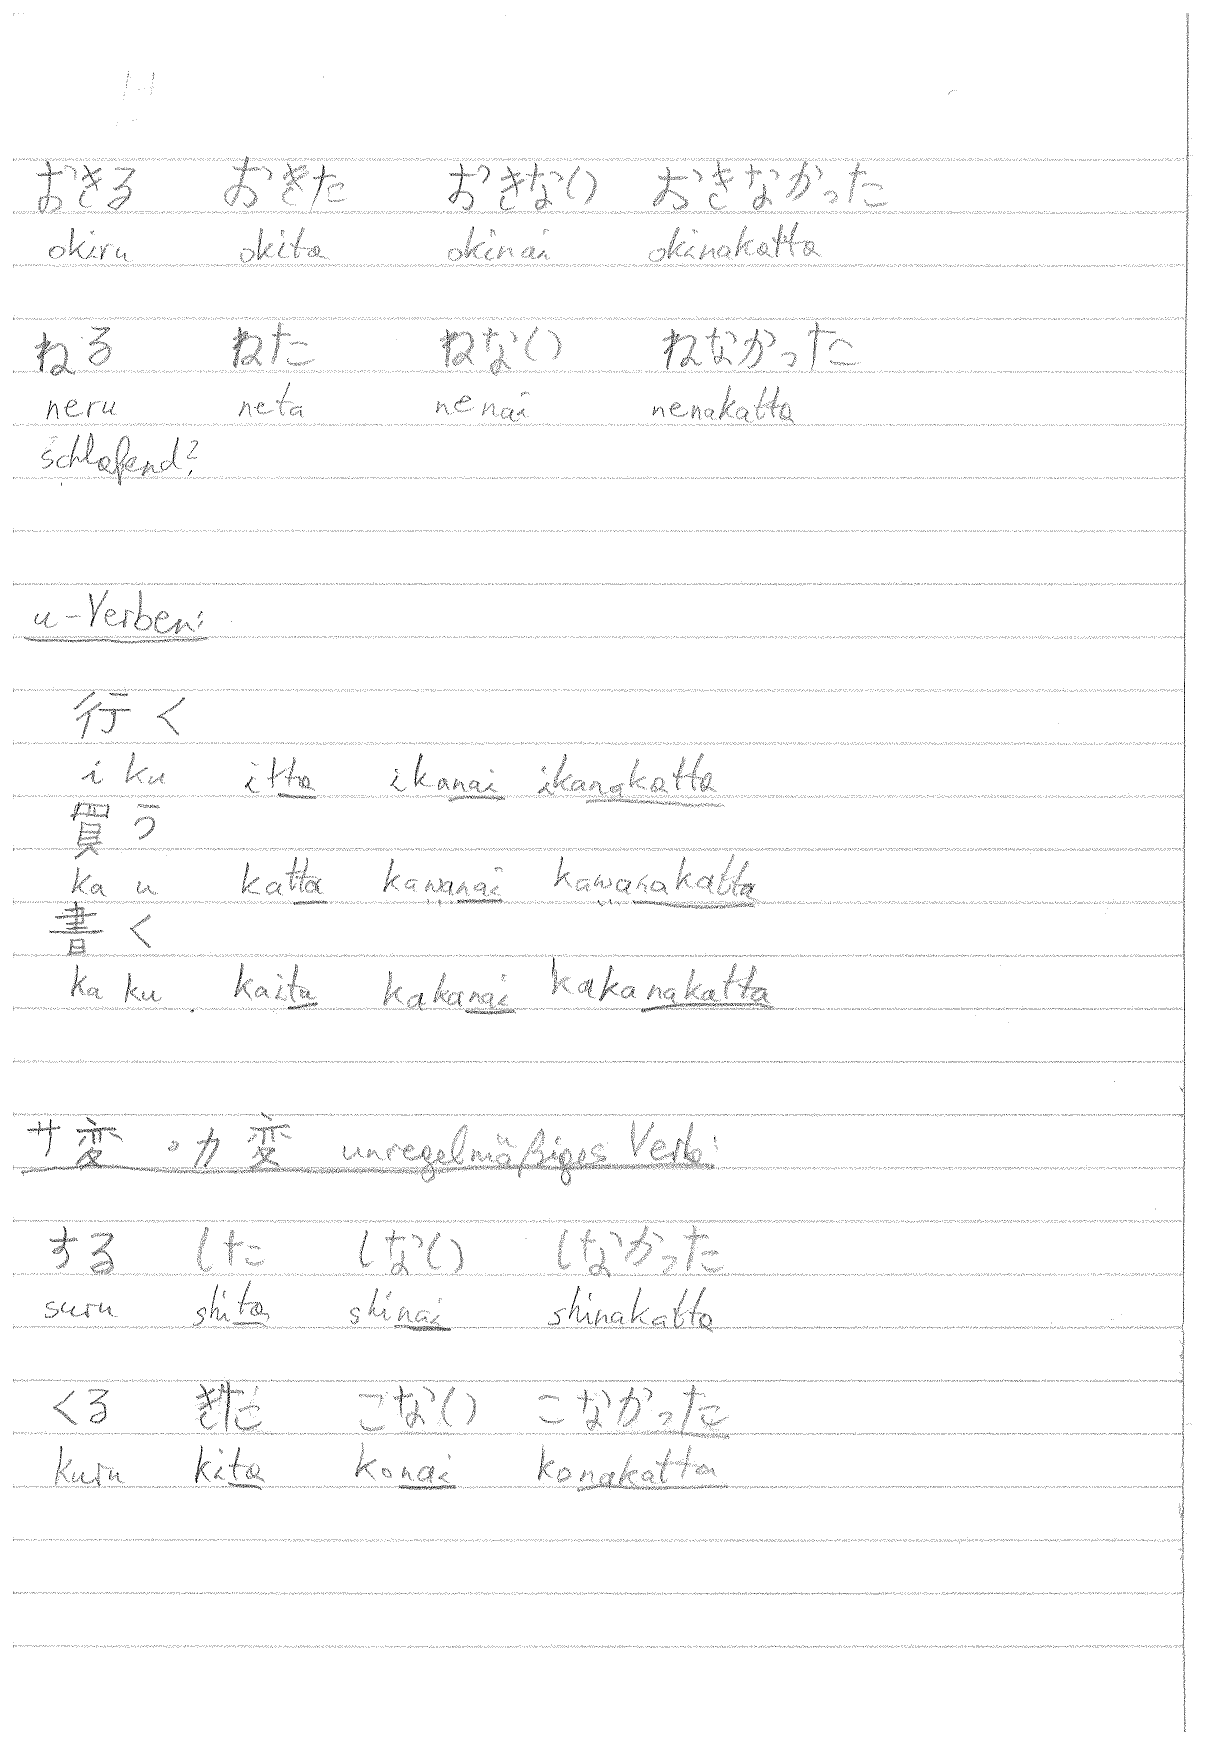 おきる おきた おきない おきなかった
okiru okita okinai okinakatta
ねる ねた ねない ねなかった
neru neta nenai nenakatta
schlafend?
u-Verben:
行く
i ku itta ikanai ikanakatta
買う
ka u katta kawanai kawanakatta
書く
ka ku kaita kakanai kakanakatta
サ変・カ変 unregelmäßiges Verb:
する した しない しなかった
suru shita shinai shinakatta
くる きた こない こなかった
kuru kita konai konakatta